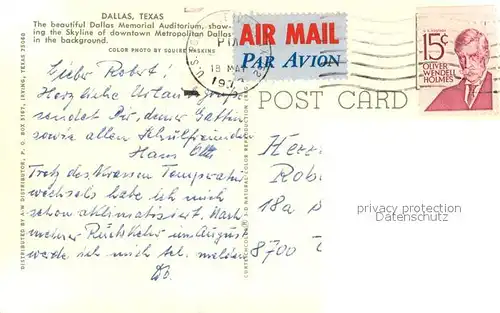 DALLAS, TEXAS
The beautiful Dallas Memorial Auditorium, show-
ing the Skyline of downtown Metropolitan Dallas
in the background.
COLOR PHOTO BY SQUIRE HASKINS
AIR MAIL
PAR AVION
PM
18 MAY
19
15¢
OLIVER
WENDELL
HOLMES
POST CARD
Lieber Robert!
Herzliche Urlaubsgrüße
sendet Dir, deiner Gattin
sowie allen Schulfreunden
Hans Otti
Trotz des krassen Temperatur
wechsels habe ich mich
schon akklimatisiert. Nach
meiner Rückkehr im August
werde ich mich tel. melden
Do.
Herr
Rob
18a
8700
DISTRIBUTED BY A-W DISTRIBUTOR, P. O. BOX 3187, IRVING, TEXAS 75060
CURTEICHCOLOR® 3-D NATURAL COLOR REPRODUCTION
privacy protection
Datenschutz